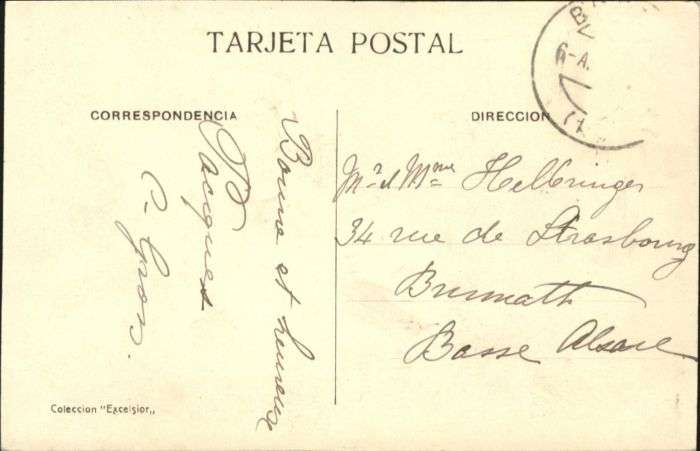 TARJETA POSTAL
CORRESPONDENCIA
DIRECCION
6-A.
Bonne et heureuse
Pacques
Mr et Mme Helbringer
34 rue de Strasbourg
Brumath
Basse Alsace
Coleccion "Excelsior„